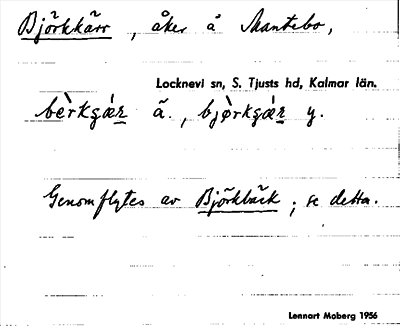 Björkkärr, åker å Mantebo,
Locknevi sn, S. Tjusts hd, Kalmar län.
bèrkgǽr ä., bjørkgǽr y.
Genomflytes av Björkbäck; se detta.
Lennart Moberg 1956